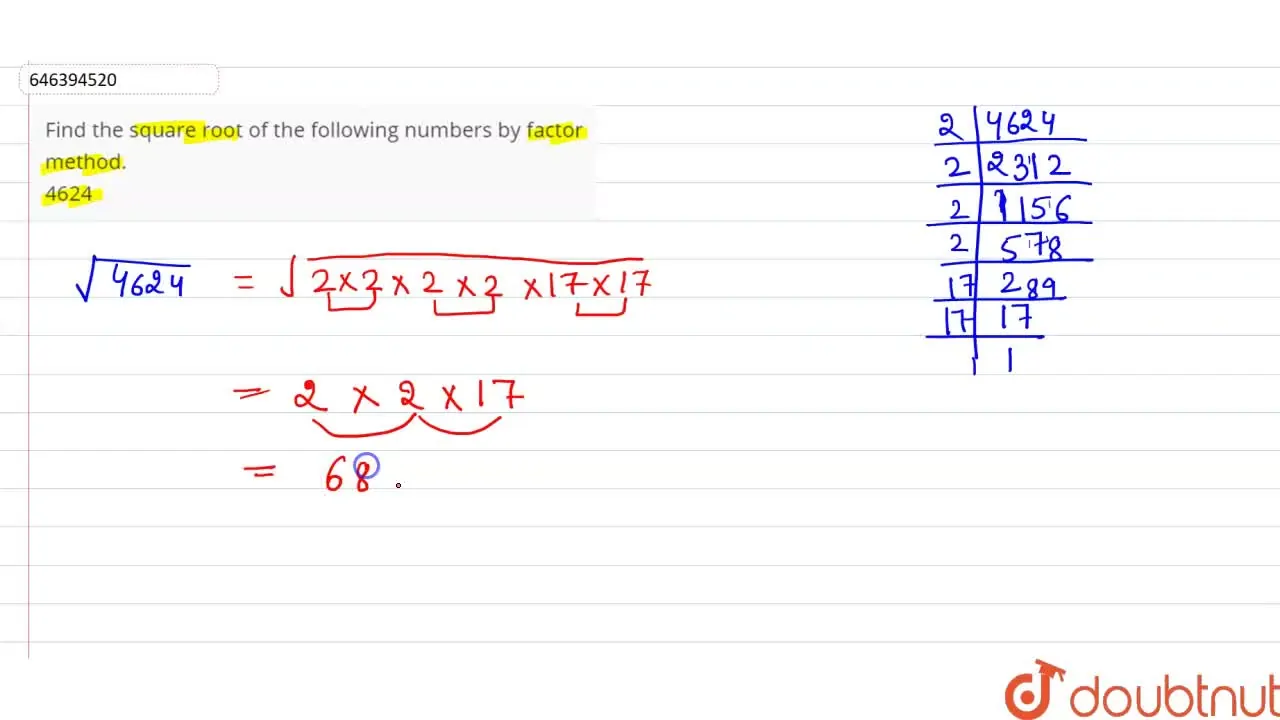 646394520
Find the square root of the following numbers by factor
method.
4624
√4624 = √2×2×2×2×17×17
= 2 × 2 × 17
= 68.
2 | 4624
2 | 2312
2 | 1156
2 | 578
17 | 289
17 | 17
1 | 1
doubtnut